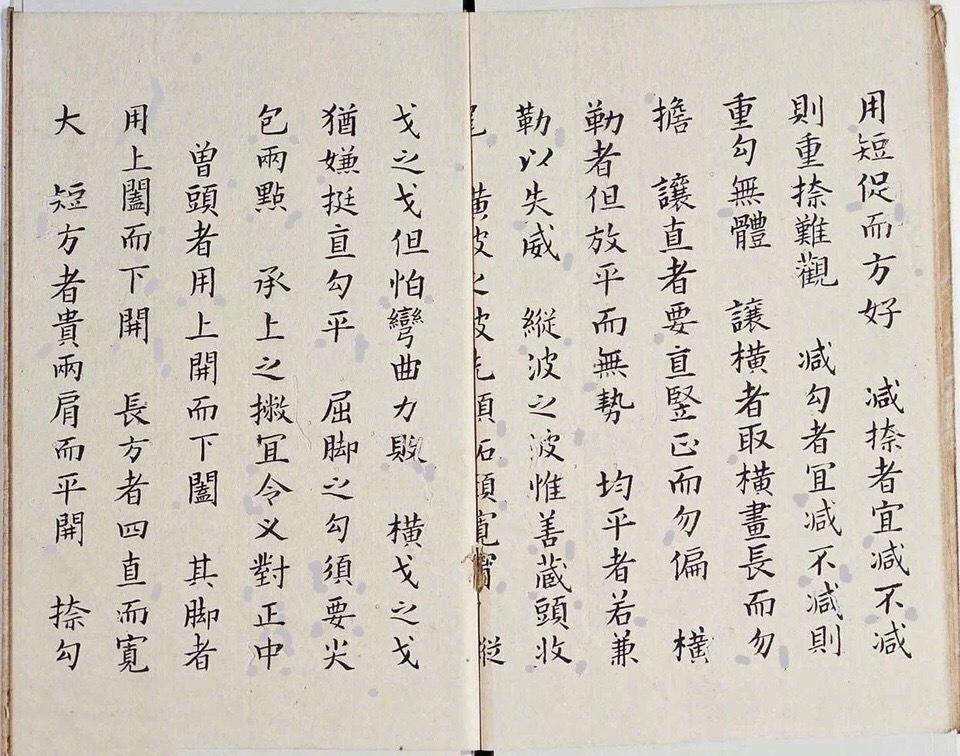 用短促而方好　减捺者宜减不减
則重捺難觀　减勾者冝减不减則
重勾無體　讓橫者取橫畫長而勿
擔　讓直者要直竪正而勿偏　橫
勒者但放平而無勢　均平者若兼
勒以失威　縱波之波惟善藏頭收
尾　橫波之波先須拓頸寬 縱
戈之戈但怕彎曲力敗　橫戈之戈
猶嫌挺直勾平　屈脚之勾須要尖
包兩點　承上之撇冝令义對正中
曾頭者用上開而下闔　其脚者
用上闔而下開　長方者四直而寬
大　短方者貴兩肩而平開　捺勾